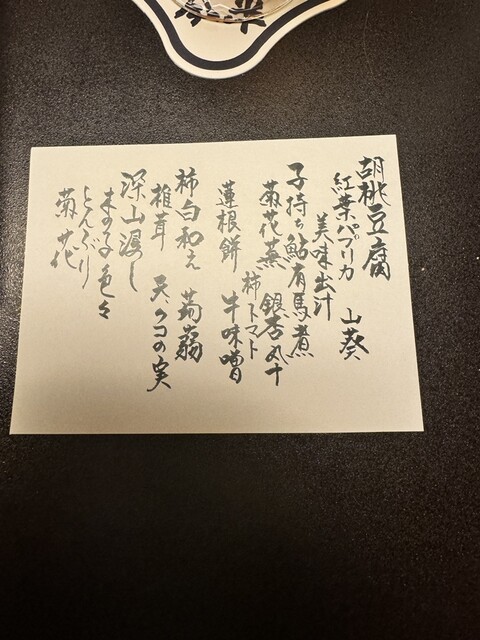 胡桃豆腐
紅葉パプリカ
美味出汁 山葵
子持ち鮎有馬煮
菊花蕪 銀杏丸十
柿トマト
蓮根餅 牛味噌
柿白和え 蒟蒻
椎茸 クコの実
深山浸し
とんぶり
菊花